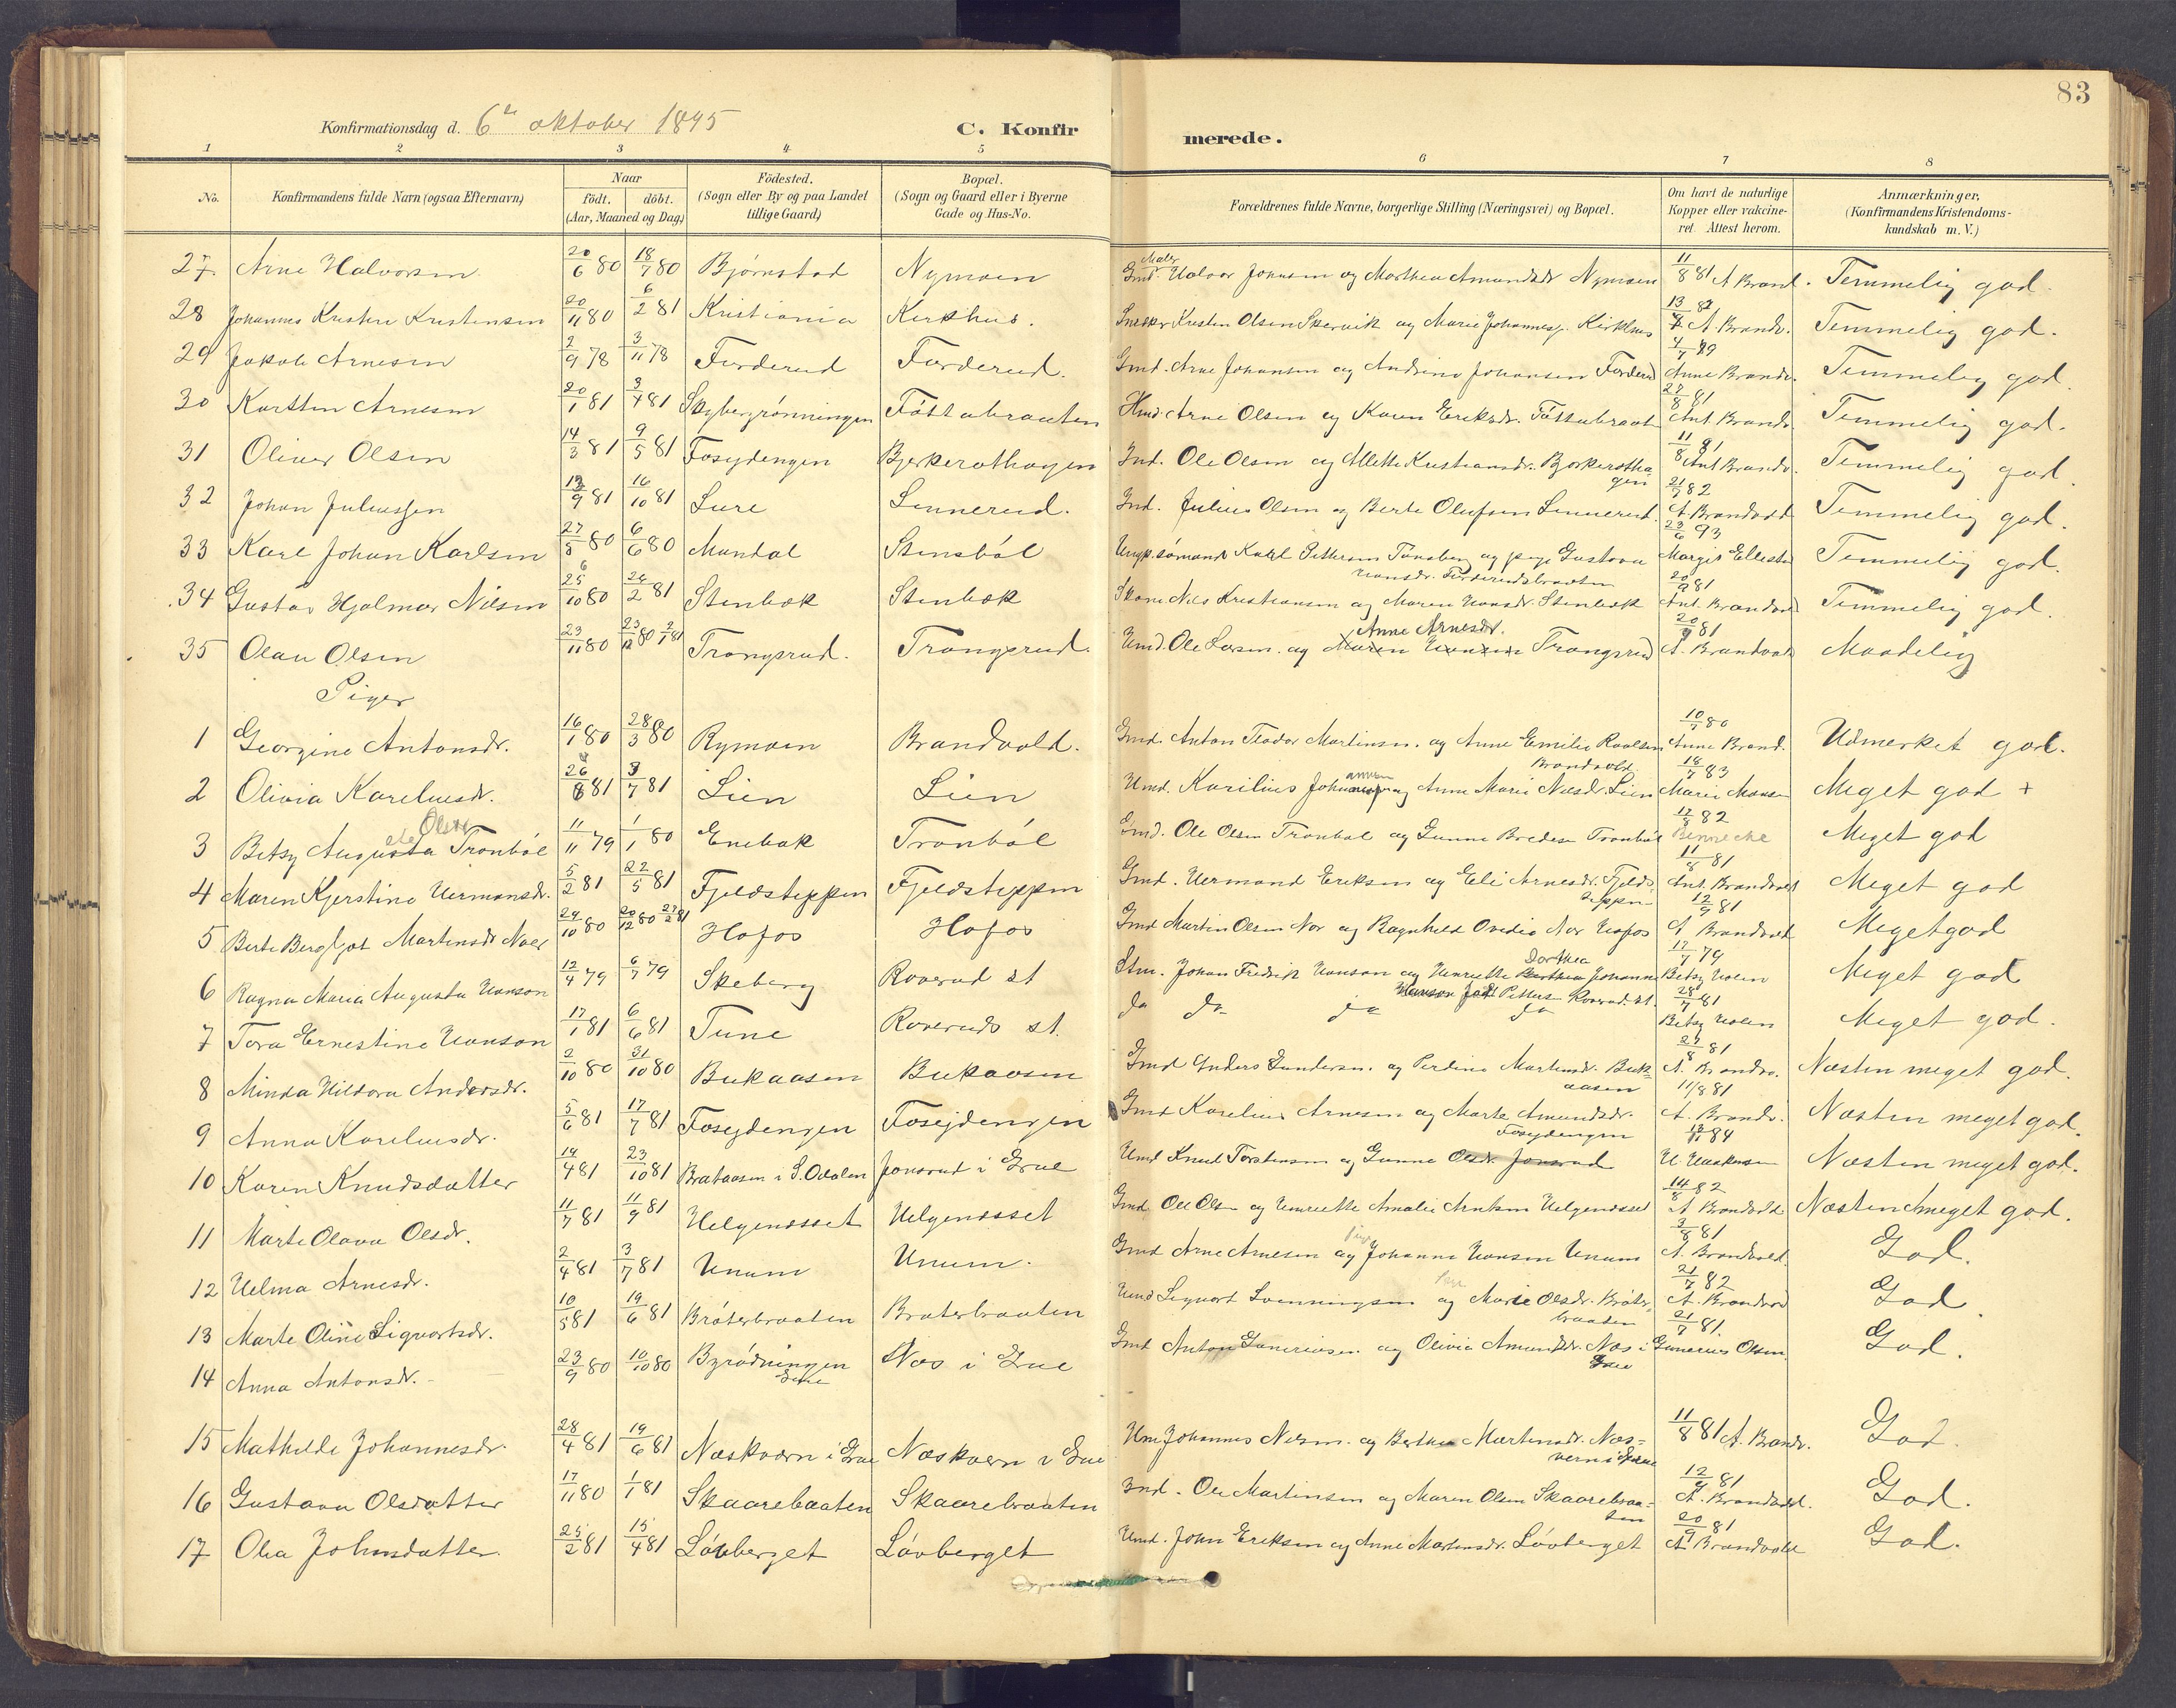 83
Konfirmationsdag d. 6te oktober 1895 C. Konfir merede.
1 2 3 4 5 6 7 8
No. Konfirmandens fulde Navn (ogsaa Efternavn) Naar født. døbt. (Aar, Maaned og Dag) Fødested. (Sogn eller By og paa Landet tillige Gaard) Bopæl. (Sogn og Gaard eller i Byerne Gade og Hus-No. Forældrenes fulde Navne, borgerlige Stilling (Næringsvei) og Bopæl. Om havt de naturlige Kopper eller vakcineret. Attest herom. Anmærkninger, (Konfirmandens Kristendomskundskab m. V.)
27 Arne Halvorsen 20/6 80 18/7 80 Bjørnstad Nymoen Gmd. Maler Halvor Johnsen og Marthea Amundsdr Nymoen 11/8 81 A Brand. Temmelig god.
28 Johannes Kristen Kristensen 20/11 80 6/2 81 Kristiania Kirkhus. Snedker Kristen Olsen Skervik og Marie Johannesp. Kirkhus A. Brandv. Temmelig god.
29 Jakob Arnesen 2/9 78 3/11 78 Forderud Forderud. Gmd. Arne Johansen og Andrine Johansen Forderud 4/7 79 Anne Brandv. Temmelig god.
30 Karsten Arnesen 20/1 81 3/4 81 Skybergrønningen Føttabraaten Hmd. Arne Olsen og Karen Eriksdr. Føttabraat 27/8 81 Ant. Brandv. Temmelig god.
31 Oliver Olsen 14/3 81 9/5 81 Fosejdengen Bjerkerothagen Ind. Ole Olsen og Mette Kristiansdr. Bjerkerothagen 11/8 81 Ant Brandv. Temmelig god.
32 Johan Juliussen 13/9 81 16/10 81 Lure Linnerud. Ind. Julius Olsen og Berte Olufsen Linnerud. 21/7 82 A. Brandvold Temmelig god.
33 Karl Johan Karlsen 27/5 80 6/6 80 Mandal Stensbøl Ungk. sømand Karl Pettersen Tønsberg og pige Gustava Hansdr. Forderudsbraaten 23/6 93 Margit Ellestad Temmelig god.
34 Gustav Hjalmar Nilsen 25/10 80 24/2 81 Stenbæk Stenbæk Skom. Nils Kristiansen og Maren Hansdr. Stenbæk 20/9 81 Ant. Brandvold Temmelig god.
35 Olau Olsen 23/11 80 23/12 80 2/1 81 Trangsrud. Trangsrud. Hmd. Ole Larsen. og Maren Hansen Anne Arnesdr. Trangsrud 20/9 81 A. Brandvold Maadelig
Piger
1 Georgine Antonsdr. 16/1 80 28/3 80 Rymoen Brandvold. Gmd. Anton Teodor Martinsen. og Anne Emilie Roalsen Brandvold 10/7 80 Anne Brand. Udmerket god.
2 Olivia Kareliusdr. 26/6 81 3/7 81 Lien Lien Hmd. Karilius Johannesen og Anne Marie Nilsdr. Lien 18/7 83 Marie Monsen Meget god +
3 Betsy Augusta Olsen Tronbøl 11/11 79 1/1 80 Enebak Tronbøl Gmd. Ole Olsen Tronbøl og Gunne Bredesen Tronbøl 12/8 82 Bennecke Meget god
4 Maren Kjerstine Hermansdr. 5/2 81 22/5 81 Fjeldsteppen Fjeldsteppen Gmd. Hermand Eriksen og Eli Arnesdr. Fjeldsteppen 11/8 81 Ant. Brandvold Meget god
5 Berte Bergljot Martinsdr Noer 24/10 80 20/12 80 27/2 81 Hofos Hofos Gmd Martin Olsen Nor og Ragnhild Ovidia Nor Hofos 12/9 81 A Brandvold Meget god
6 Ragna Maria Augusta Hanson 12/4 79 6/7 79 Skeberg Roverud st Stm. Johan Fredrik Hanson og Henriette Dorthea Johanne Hanson født Petters Roverud st. 17/7 79 Betsy Holen Meget god
7 Tora Ernestine Hanson 17/1 81 6/6 81 Tune Roveruds st. Do Do Do Do 28/7 81 Betsy Holen Meget god.
8 Minda Hildora Andersdr. 2/10 80 31/10 80 Bukaasen Bukaasen Gmd Anders Gundersen. og Perdine Martinsdr. Bukaasen 27/8 81 A. Brandvo. Næsten meget god.
9 Anna Kareliusdr. 5/6 81 17/7 81 Fosejdengen Fosejdengen Gmd Karelius Arnesen og Marte Amundsdr. Fosejdengen 11/8 81 A. Brandv. Næsten meget god.
10 Karen Knudsdatter 14/4 81 23/10 81 Brataasen i S. Odalen Jonsrud i Grue Hmd Knud Torstensen og Gunne Olsdr. Jonsrud Næsten meget god.
11 Marte Olava Olsdr. 11/7 81 11/9 81 Helgenæsset Helgenæsset Gmd. Ole Olsen og Henriette Amalie Arntsen Helgenæsset 14/8 82 A Brandvold Næsten meget god.
12 Helma Arnesdr. 2/4 81 3/7 81 Unum Unum. Gmd Arne Arnesen og pige Johanne Hansen Unum 3/8 81 A. Brandvold. God.
13 Marte Oline Sigvartsdr. 10/5 81 19/6 81 Brøterbraaten Braterbraaten Hmd Sigvart Svenningsen og Marie Olsdr. Brøterbraaten 21/7 82 A. Brandvold God.
14 Anna Antonsdr. 23/9 80 10/10 80 Byrødningen Grue Næs i Grue Gmd Anton Gunerius. og Olivia Amundsdr. Næs i Grue 21/7 81. Gunerius Olsen. God.
15 Mathilde Johannesdr. 28/4 81 19/6 81 Næskværn i Grue Næskværn i Grue Hm Johannes Nilsen. og Berthe Martinsdr. Næskvern i Grue 11/8 81 A. Brandv. God
16 Gustava Olsdatter 17/11 80 1/1 81 Skaarebaaten Skaarebraaten Ind. Ole Martinsen og Maren Olsen Skaarebraaten 12/9 81 A. Brandvold. God.
17 Olea Johnsdatter 25/2 81 15/4 81 Løvberget Løvberget Hmd. John Eriksen og Anne Martinsdr. Løvberget 20/9 81 A Brandvold God.